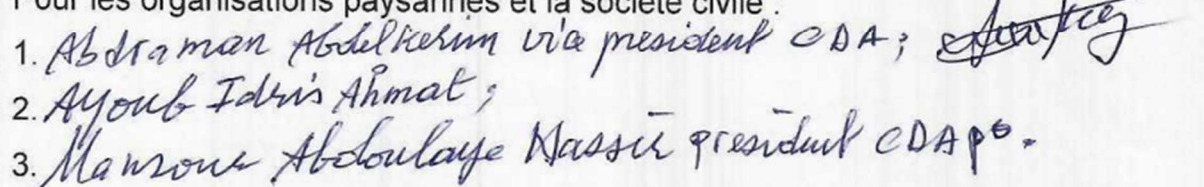 Pour les organisations paysannes et la société civile :
1. Abdraman Abdelkerim vice president CDA;
2. Ayoub Idris Ahmat;
3. Mansour Abdoulaye Nassir president CDAPo.